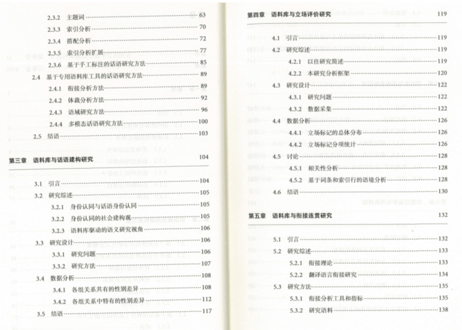 2.3.2 主题词 63
2.3.3 索引分析 70
2.3.4 搭配分析 72
2.3.5 索引分析扩展 77
2.3.6 基于手工标注的话语研究方法 85
2.4 基于专用语料库工具的话语研究方法 89
2.4.1 衔接分析方法 89
2.4.2 体裁分析方法 92
2.4.3 语域研究方法 96
2.4.4 多模态话语研究方法 100
2.5 结语 103
第三章 语料库与话语建构研究 104
3.1 引言 104
3.2 研究综述 105
3.2.1 身份认同与话语身份认同 105
3.2.2 身份认同的社会建构观 105
3.2.3 语料库驱动的语义研究视角 106
3.3 研究设计 106
3.3.1 研究问题 106
3.3.2 研究方法 107
3.4 数据分析 108
3.4.1 各组关系共有的性别差异 108
3.4.2 各组关系中特有的性别差异 112
3.5 结语 117
第四章 语料库与立场评价研究 119
4.1 引言 119
4.2 研究综述 119
4.2.1 以往研究简述 119
4.2.2 本研究分析框架 120
4.3 研究设计 122
4.3.1 研究问题 122
4.3.2 数据采集 122
4.4 数据分析 126
4.4.1 立场标记的总体分布 126
4.4.2 立场标记分项统计 126
4.5 讨论 128
4.5.1 相关性分析 128
4.5.2 基于词条和索引行的语境分析 128
4.6 结语 130
第五章 语料库与衔接连贯研究 132
5.1 引言 132
5.2 研究综述 133
5.2.1 衔接理论 133
5.2.2 翻译语言衔接研究 134
5.3 研究方法 135
5.3.1 衔接分析工具和指标 135
5.3.2 研究语料 138